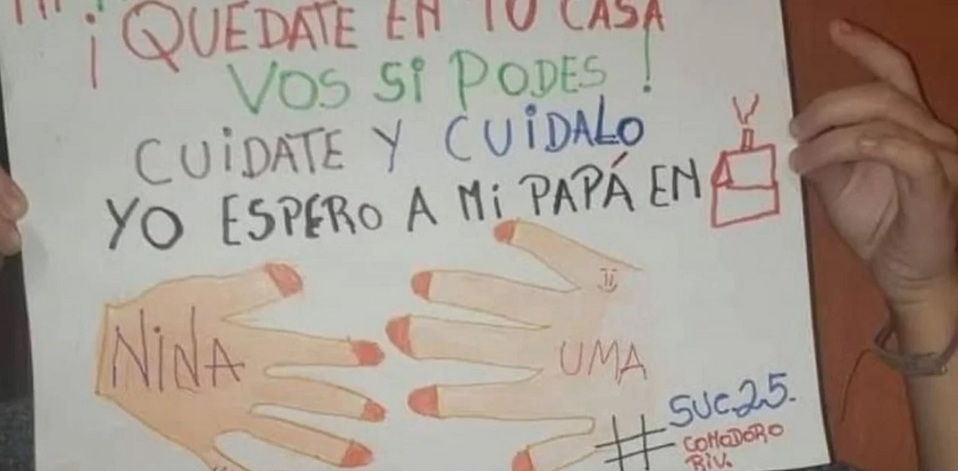 ¡QUEDATE EN TU CASA
VOS SI PODES!
CUIDATE Y CUIDALO
YO ESPERO A MI PAPÁ EN
NINA
UMA
# SUC.25.
COMODORO
RIV.